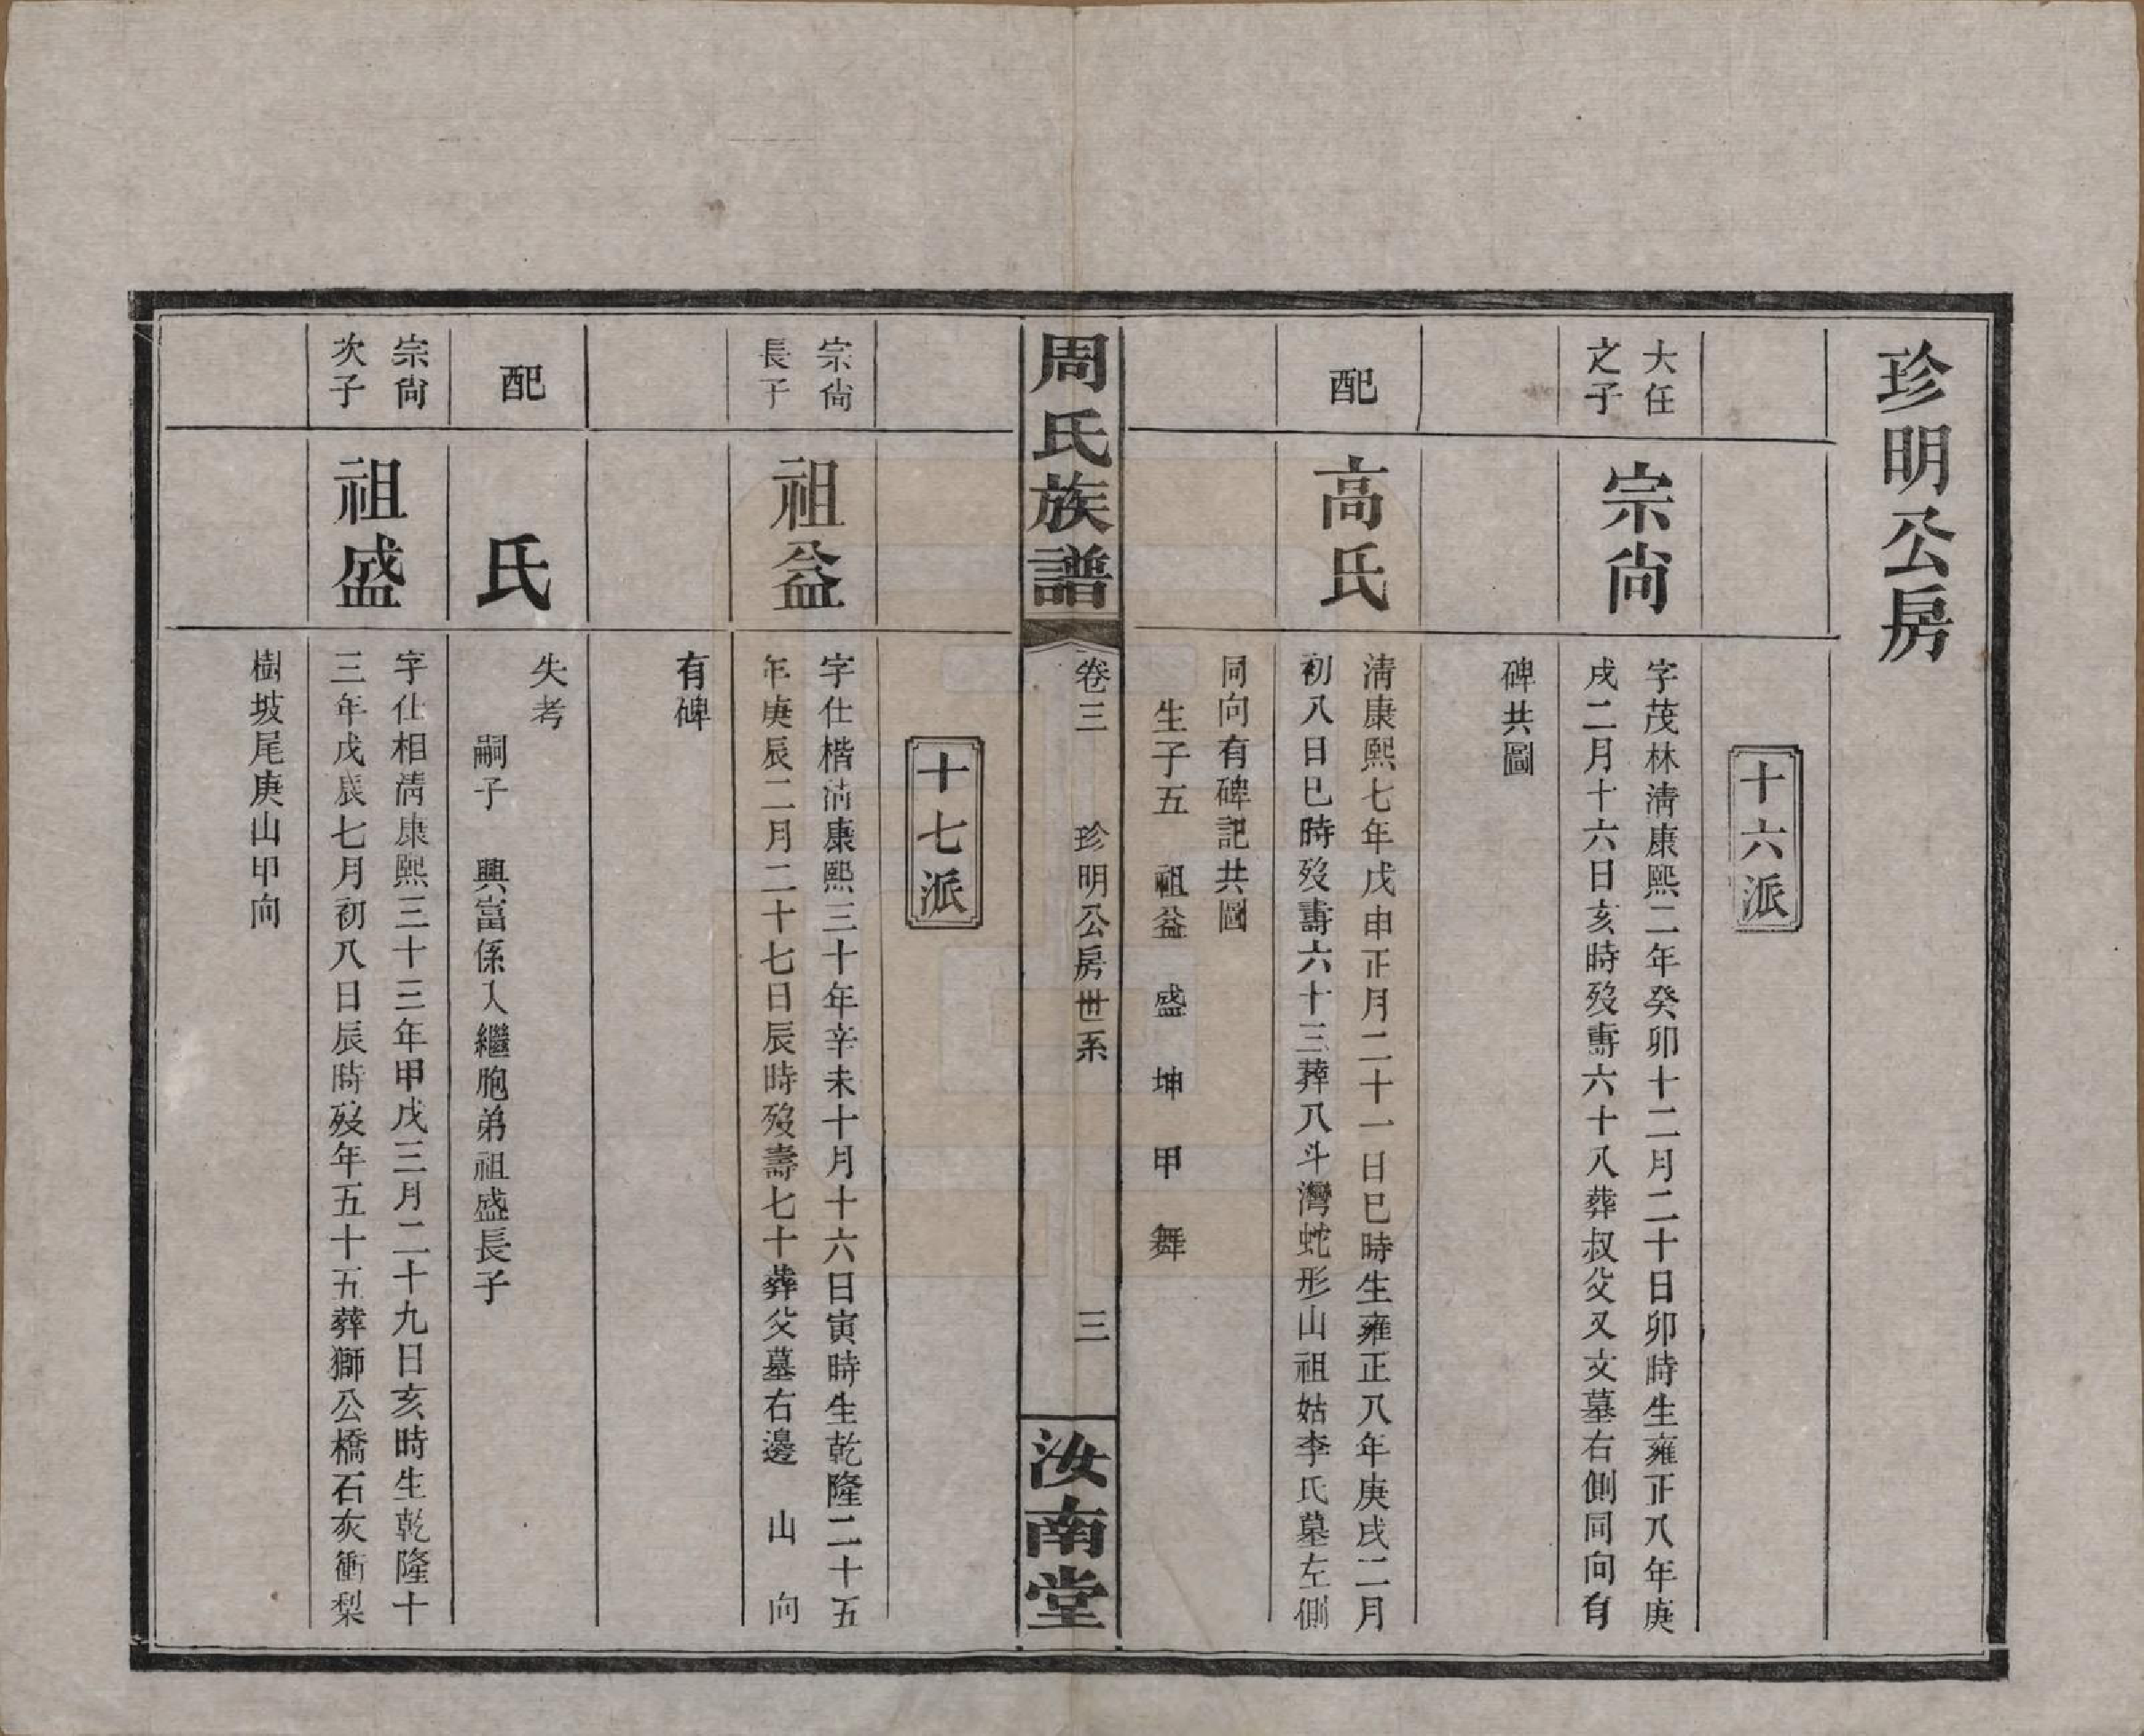 珍明公房
十六派
大任
之子
宗尙
字茂林淸康熙二年癸卯十二月二十日卯時生雍正八年庚
戌二月十六日亥時歿壽六十八葬叔父又文墓右側同向有
碑共圖
配
高氏
淸康熙七年戊申正月二十一日巳時生雍正八年庚戌二月
初八日巳時歿壽六十三葬八斗灣蛇形山祖姑李氏墓左側
同向有碑記共圖
生子五 祖益 盛 坤 甲 舞
周氏族譜
卷三 珍明公房世系 三
汝南堂
十七派
宗尙
長子
祖益
字仕楷淸康熙三十年辛未十月十六日寅時生乾隆二十五
年庚辰二月二十七日辰時歿壽七十葬父墓右邊 山 向
有碑
配
氏
失考
嗣子 興富係入繼胞弟祖盛長子
宗尙
次子
祖盛
字仕相淸康熙三十三年甲戌三月二十九日亥時生乾隆十
三年戊辰七月初八日辰時歿年五十五葬獅公橋石灰衝梨
樹坡尾庚山甲向